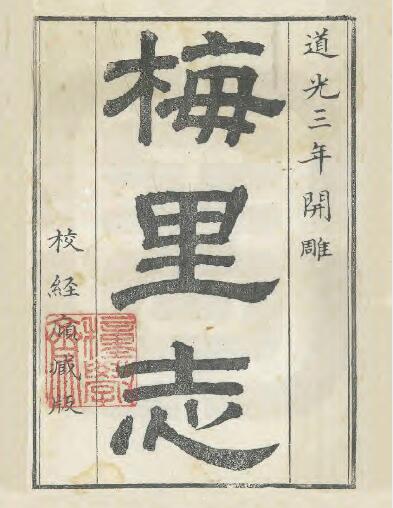 道光三年開雕
梅里志
校經廎藏版